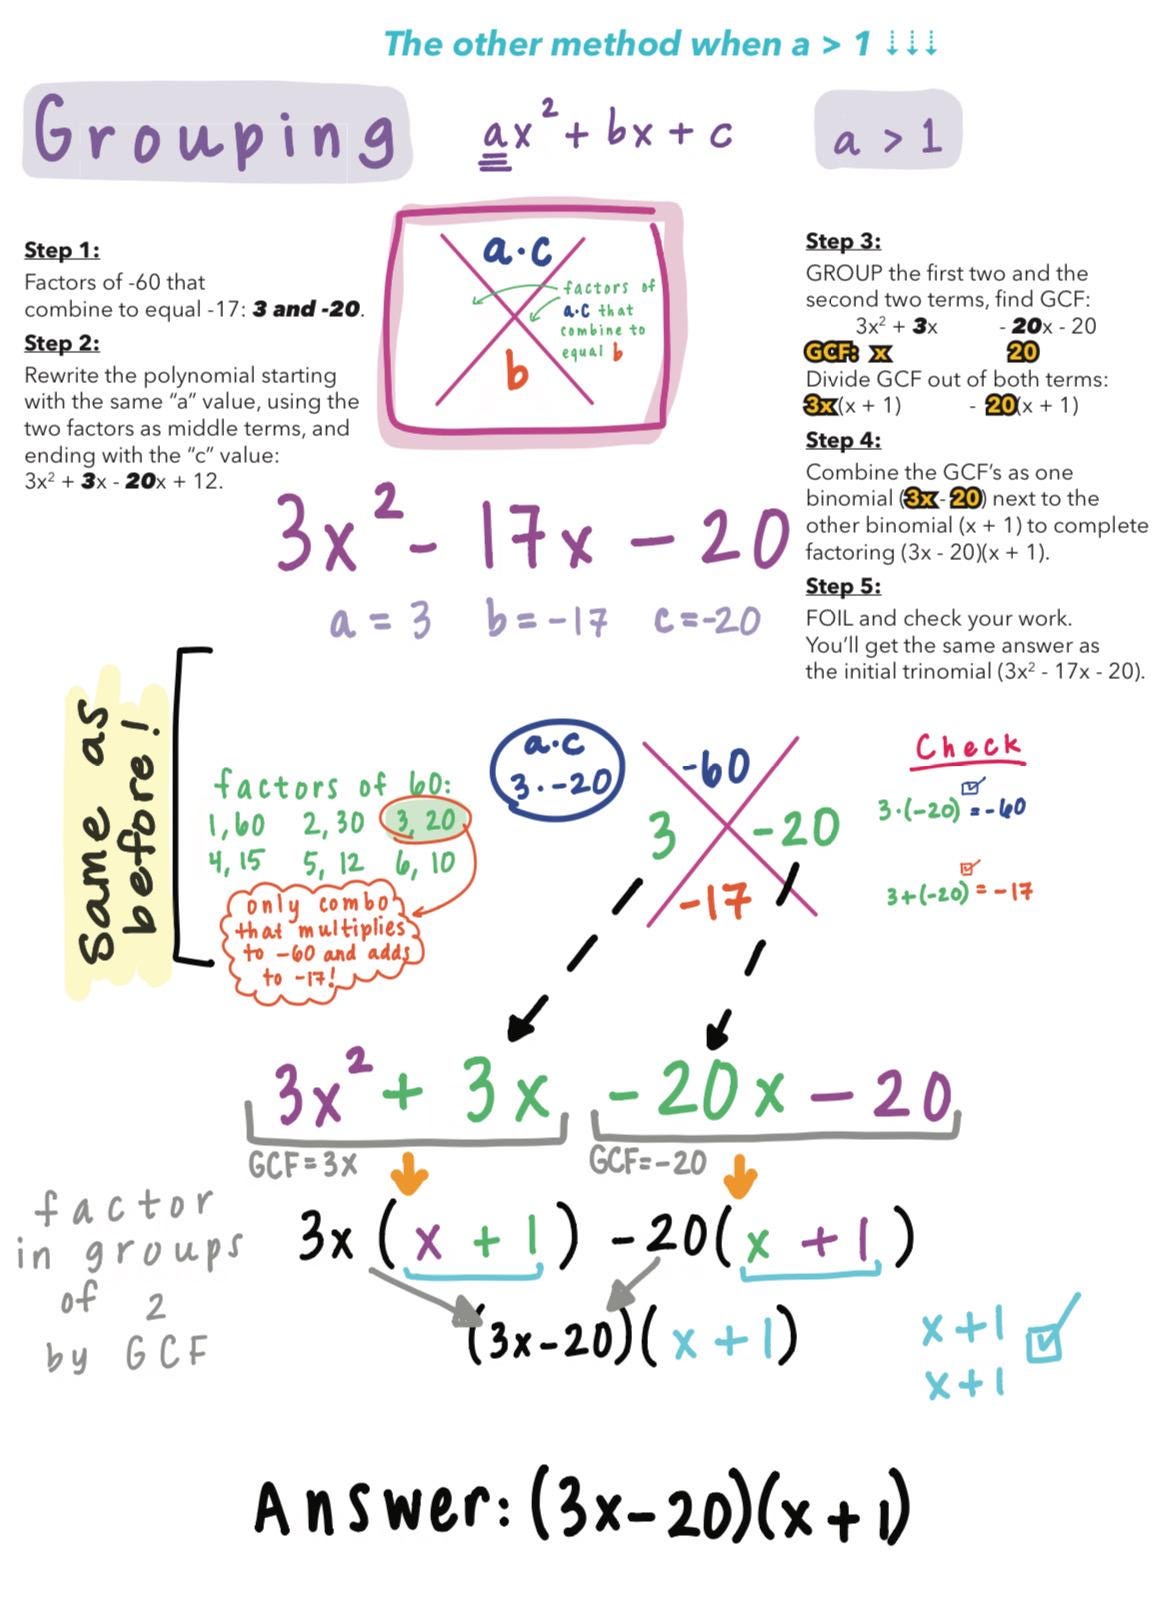 The other method when a > 1 ↓↓↓
Grouping
ax² + bx + c
a > 1
Step 1:
Factors of -60 that
combine to equal -17: 3 and -20.
Step 2:
Rewrite the polynomial starting
with the same “a” value, using the
two factors as middle terms, and
ending with the “c” value:
3x² + 3x - 20x + 12.
a·c
factors of
a·c that
combine to
equal b
b
Step 3:
GROUP the first two and the
second two terms, find GCF:
3x² + 3x - 20x - 20
GCF: x 20
Divide GCF out of both terms:
3x(x + 1) - 20(x + 1)
Step 4:
Combine the GCF’s as one
binomial (3x- 20) next to the
other binomial (x + 1) to complete
factoring (3x - 20)(x + 1).
Step 5:
FOIL and check your work.
You’ll get the same answer as
the initial trinomial (3x² - 17x - 20).
3x² - 17x - 20
a = 3 b = -17 c = -20
Same as
before!
factors of 60:
1, 60 2, 30 3, 20
4, 15 5, 12 6, 10
only combo
that multiplies
to -60 and adds
to -17!
a·c
3·-20
-60
3 -20
-17
Check
3·(-20) = -60
3+(-20) = -17
3x² + 3x - 20x - 20
GCF = 3x GCF = -20
factor
in groups
of 2
by GCF
3x (x + 1) - 20(x + 1)
(3x-20)(x + 1)
x + 1
x + 1
Answer: (3x-20)(x + 1)